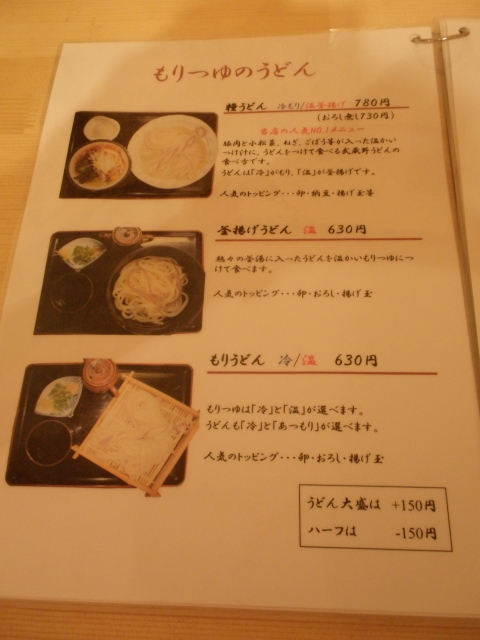 もりつゆのうどん
糧うどん 冷もり/温釜揚げ 780円
(おろし無し730円)
当店の人気NO.1メニュー
豚肉と小松菜、ねぎ、ごぼう等が入った温かい
つけ汁に、うどんをつけて食べる武蔵野うどんの
食べ方です。
うどんは「冷」がもり、「温」が釜揚げです。
人気のトッピング・・・卵・納豆・揚げ玉等
釜揚げうどん 温 630円
熱々の釜湯に入ったうどんを温かいもりつゆにつ
けて食べます。
人気のトッピング・・・卵・おろし・揚げ玉
もりうどん 冷/温 630円
もりつゆは「冷」と「温」が選べます。
うどんも「冷」と「あつもり」が選べます。
人気のトッピング・・・卵・おろし・揚げ玉
うどん大盛は +150円
ハーフは -150円